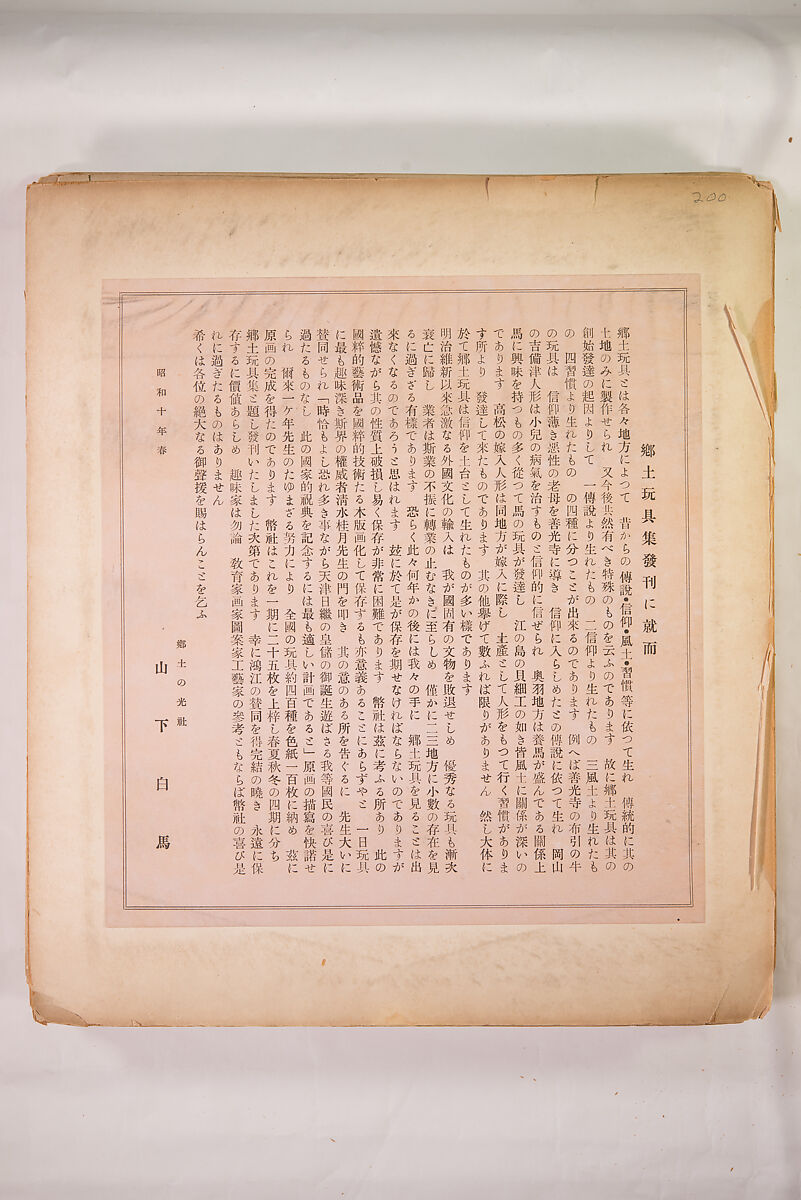 200
鄕土玩具集發刊に就而
鄕土玩具とは各々地方によつて　昔からの傳說•信仰•風土•習慣等に依つて生れ　傳統的に其の
土地のみに製作せられ　又今後共然有べき特殊のものを云ふのであります　故に鄕土玩具は其の
創始發達の起因よりして　一傳說より生れたもの　二信仰より生れたもの　三風土より生れたも
の　四習慣より生れたもの　の四種に分つことが出來るのであります　例へば善光寺の布引の牛
の玩具は　信仰薄き惡性の老母を善光寺に導き　信仰に入らしめたとの傳說に依つて生れ　岡山
の吉備津人形は小兒の病氣を治すものと信仰的に信ぜられ　奧羽地方は養馬が盛んである關係上
馬に興味を持つもの多く從つて馬の玩具が發達し　江の島の貝細工の如き皆風土に關係が深いの
であります　高松の嫁入人形は同地方が嫁入に際し　土產として人形をもつて行く習慣がありま
す所より　發達して來たものであります　其の他擧げて數ふれば限りがありません　然し大体に
於て鄕土玩具は信仰を土台として生れたものが多い樣であります
明治維新以來急激なる外國文化の輸入は　我が國固有の文物を敗退せしめ　優秀なる玩具も漸次
衰亡に歸し　業者は斯業の不振に轉業の止むなきに至らしめ　僅かに二三地方に小數の存在を見
るに過ぎざる有樣であります　恐らく此々何年かの後には我々の手に　鄕土玩具を見ることは出
來なくなるのであろうと思はれます　玆に於て是が保存を期せなければならないのでありますが
遺憾ながら其の性質上破損し易く保存が非常に困難であります　幣社は玆に考ふる所あり　此の
國粹的藝術品を國粹的技術たる木版画化して保存するも亦意義あることにあらずやと　一日玩具
に最も趣味深き斯界の權威者淸水桂月先生の門を叩き　其の意のある所を告ぐるに　先生大いに
賛同せられ「時恰もよし恐れ多き事ながら天津日繼の皇儲の御誕生遊ばさる我等國民の喜び是に
過たるものなし　此の國家的祝典を記念するには最も適しい計画であると」原画の描寫を快諾せ
られ　爾來一ケ年先生のたゆまざる努力により　全國の玩具約四百種を色紙一百枚に納め　玆に
原画の完成を得たのであります　幣社はこれを一期に二十五枚を上梓し春夏秋冬の四期に分ち
鄕土玩具集と題し發刊いたしました次第であります　幸に鴻江の賛同を得完結の曉き　永遠に保
存するに價値あらしめ　趣味家は勿論　敎育家画家圖案家工藝家の參考ともならば幣社の喜び是
れに過ぎたるものはありません
希くは各位の絕大なる御聲援を賜はらんことを乞ふ
昭和十年春
鄕土の光社
山下白馬